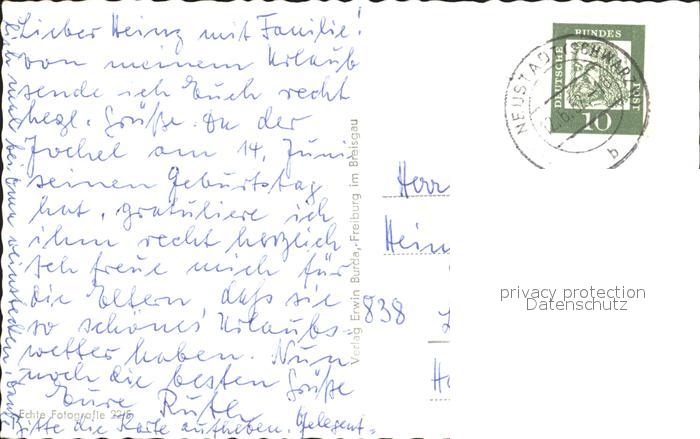 Lieber Heinz mit Familie!
von meinem Urlaub
sende ich Euch recht
herzl. Grüße. Da der
Jochel am 14. Juni
seinen Geburtstag
hat, gratuliere ich
ihm recht herzlich
Ich freue mich für
die Eltern daß sie
so schönes Urlaubs-
wetter haben. Nun
noch die besten Grüße
Eure Ruth
Bitte die Karte aufheben. Gelegent-
Echte Fotografie
Verlag Erwin Burda, Freiburg im Breisgau
DEUTSCHE BUNDES POST
10
NEUSTADT (SCHWARZ
b
Herr
Hein
838
privacy protection
Datenschutz